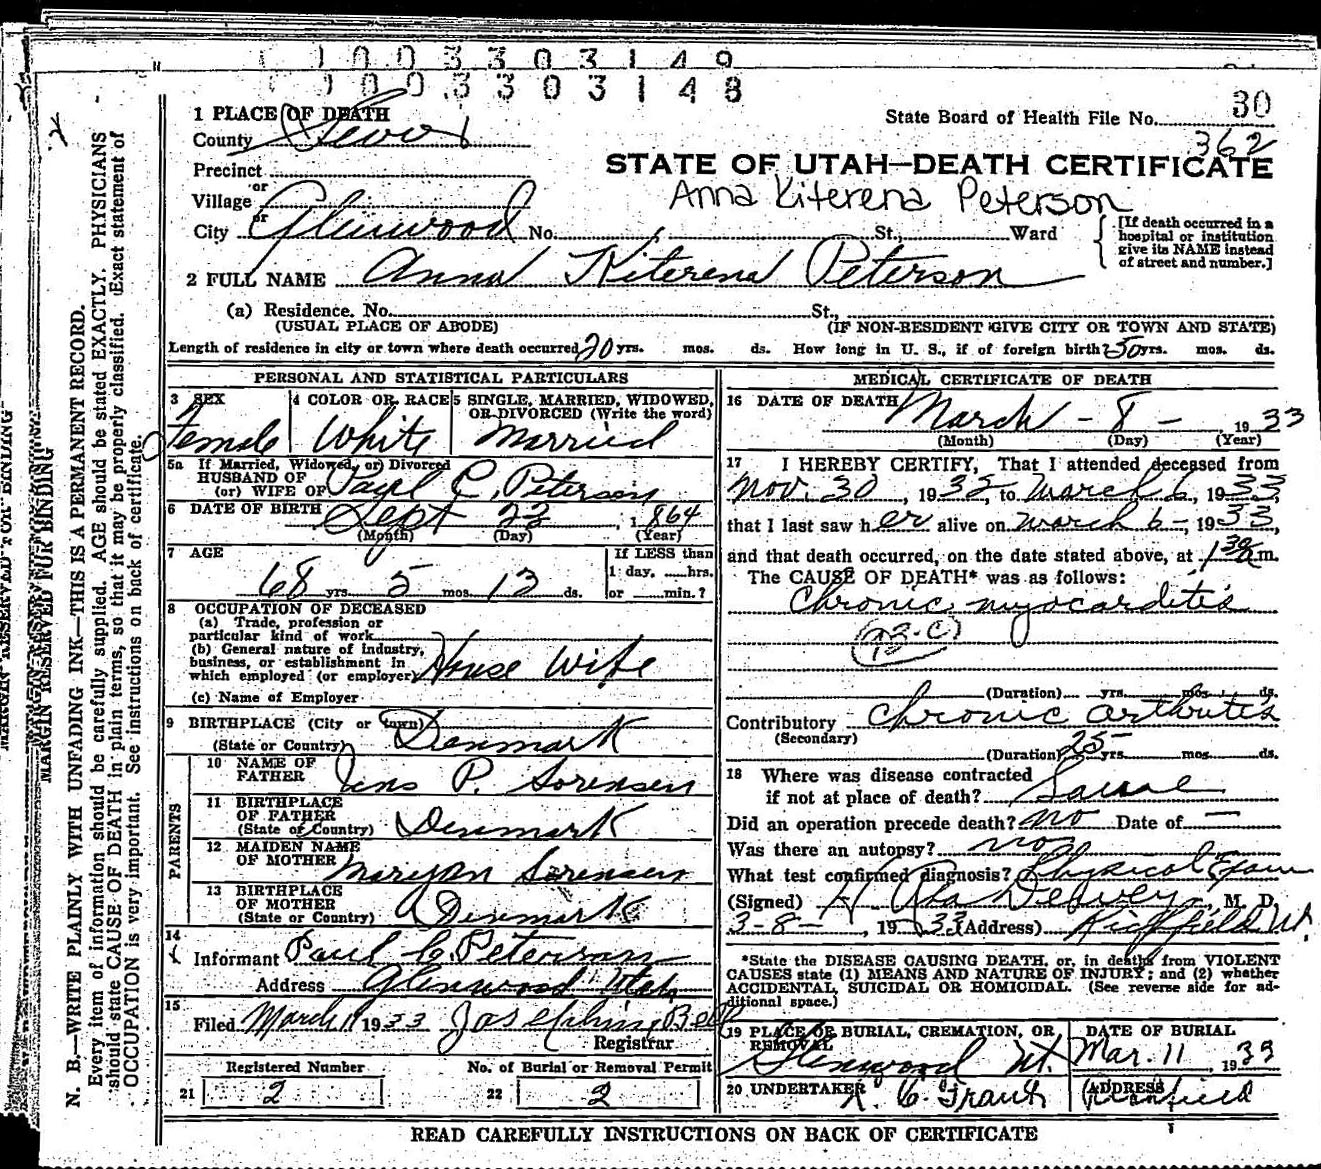 1003303149
1003303148
1 PLACE OF DEATH
County Sevier
State Board of Health File No. 30
362
Precinct
or
Village
or
City Glenwood No. St., Ward
STATE OF UTAH—DEATH CERTIFICATE
Anna Kiterena Peterson
[If death occurred in a
hospital or institution
give its NAME instead
of street and number.]
2 FULL NAME Anna Kiterena Peterson
(a) Residence. No. St.,
(USUAL PLACE OF ABODE) (IF NON-RESIDENT GIVE CITY OR TOWN AND STATE)
Length of residence in city or town where death occurred 20 yrs. mos. ds. How long in U. S., if of foreign birth? 50 yrs. mos. ds.
PERSONAL AND STATISTICAL PARTICULARS
3 SEX 4 COLOR OR RACE 5 SINGLE, MARRIED, WIDOWED,
OR DIVORCED (Write the word)
Female White Married
5a If Married, Widowed, or Divorced
HUSBAND OF
(or) WIFE OF Paul C. Peterson
6 DATE OF BIRTH Sept 22, 1864
(Month) (Day) (Year)
7 AGE
If LESS than
1 day, hrs.
68 yrs. 5 mos. 13 ds. or min.?
8 OCCUPATION OF DECEASED
(a) Trade, profession or
particular kind of work
(b) General nature of industry,
business, or establishment in
which employed (or employer) House Wife
(c) Name of Employer
9 BIRTHPLACE (City or town)
(State or Country) Denmark
PARENTS
10 NAME OF
FATHER Jens P. Sorensen
11 BIRTHPLACE
OF FATHER
(State or Country) Denmark
12 MAIDEN NAME
OF MOTHER Maryan Sorensen
13 BIRTHPLACE
OF MOTHER
(State or Country) Denmark
14
Informant Paul C. Peterson
Address Glenwood Utah
15
Filed March 11 1933 Josephine Bell
Registrar
Registered Number No. of Burial or Removal Permit
21 2 22 2
MEDICAL CERTIFICATE OF DEATH
16 DATE OF DEATH
March - 8 - , 1933
(Month) (Day) (Year)
17 I HEREBY CERTIFY, That I attended deceased from
Nov. 30, 1932, to March 6, 1933,
that I last saw her alive on March 6 - 1933,
and that death occurred, on the date stated above, at 1 30 a m.
The CAUSE OF DEATH* was as follows:
Chronic myocarditis
93-c
(Duration) yrs. mos. ds.
Contributory Chronic arthritis
(Secondary)
(Duration) 25 yrs. mos. ds.
18 Where was disease contracted
if not at place of death?
Did an operation precede death? no Date of —
Was there an autopsy? no
What test confirmed diagnosis? Physical Exam
(Signed) M. D.
3-8-, 1933 (Address) Richfield Ut.
*State the DISEASE CAUSING DEATH, or, in deaths from VIOLENT
CAUSES state (1) MEANS AND NATURE OF INJURY; and (2) whether
ACCIDENTAL, SUICIDAL OR HOMICIDAL. (See reverse side for ad-
ditional space.)
19 PLACE OF BURIAL, CREMATION, OR
REMOVAL
Glenwood Ut.
DATE OF BURIAL
Mar. 11, 1933
20 UNDERTAKER
(ADDRESS)
Richfield
READ CAREFULLY INSTRUCTIONS ON BACK OF CERTIFICATE
MARGIN RESERVED FOR BINDING
MARGIN RESERVED FOR BINDING
N. B.—WRITE PLAINLY WITH UNFADING INK—THIS IS A PERMANENT RECORD.
Every item of information should be carefully supplied. AGE should be stated EXACTLY. PHYSICIANS
should state CAUSE OF DEATH in plain terms, so that it may be properly classified. Exact statement of
OCCUPATION is very important. See instructions on back of certificate.